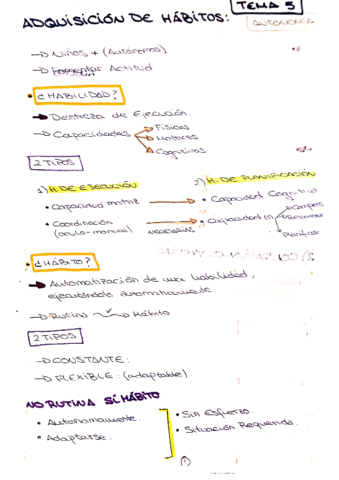 TEMA 5
ADQUISICIÓN DE HÁBITOS:
AUTONOMÍA
→ Niños + (Autónomos)
→ Fomentar Actitud
• ¿HABILIDAD?
→ Destreza de Ejecución.
→ Capacidades
Físicas
Motoras
Cognitivas
2 TIPOS
1) H. DE EJECUCIÓN
2) H. DE PLANIFICACIÓN
• Capacidad motriz
• Capacidad Cognitiva
• Coordinación
(óculo-manual)
NECESARIAS
• Capacidad
Planificar
• ¿HÁBITO?
→ Automatización de una habilidad,
ejecutándolo automáticamente
→ Rutina Hábito
2 TIPOS
→ CONSTANTE:
→ FLEXIBLE: (adaptable)
NO RUTINA SÍ HÁBITO
• Autónomamente.
• Adaptarse.
• Sin Esfuerzo.
• Situación Requerida.
(1)